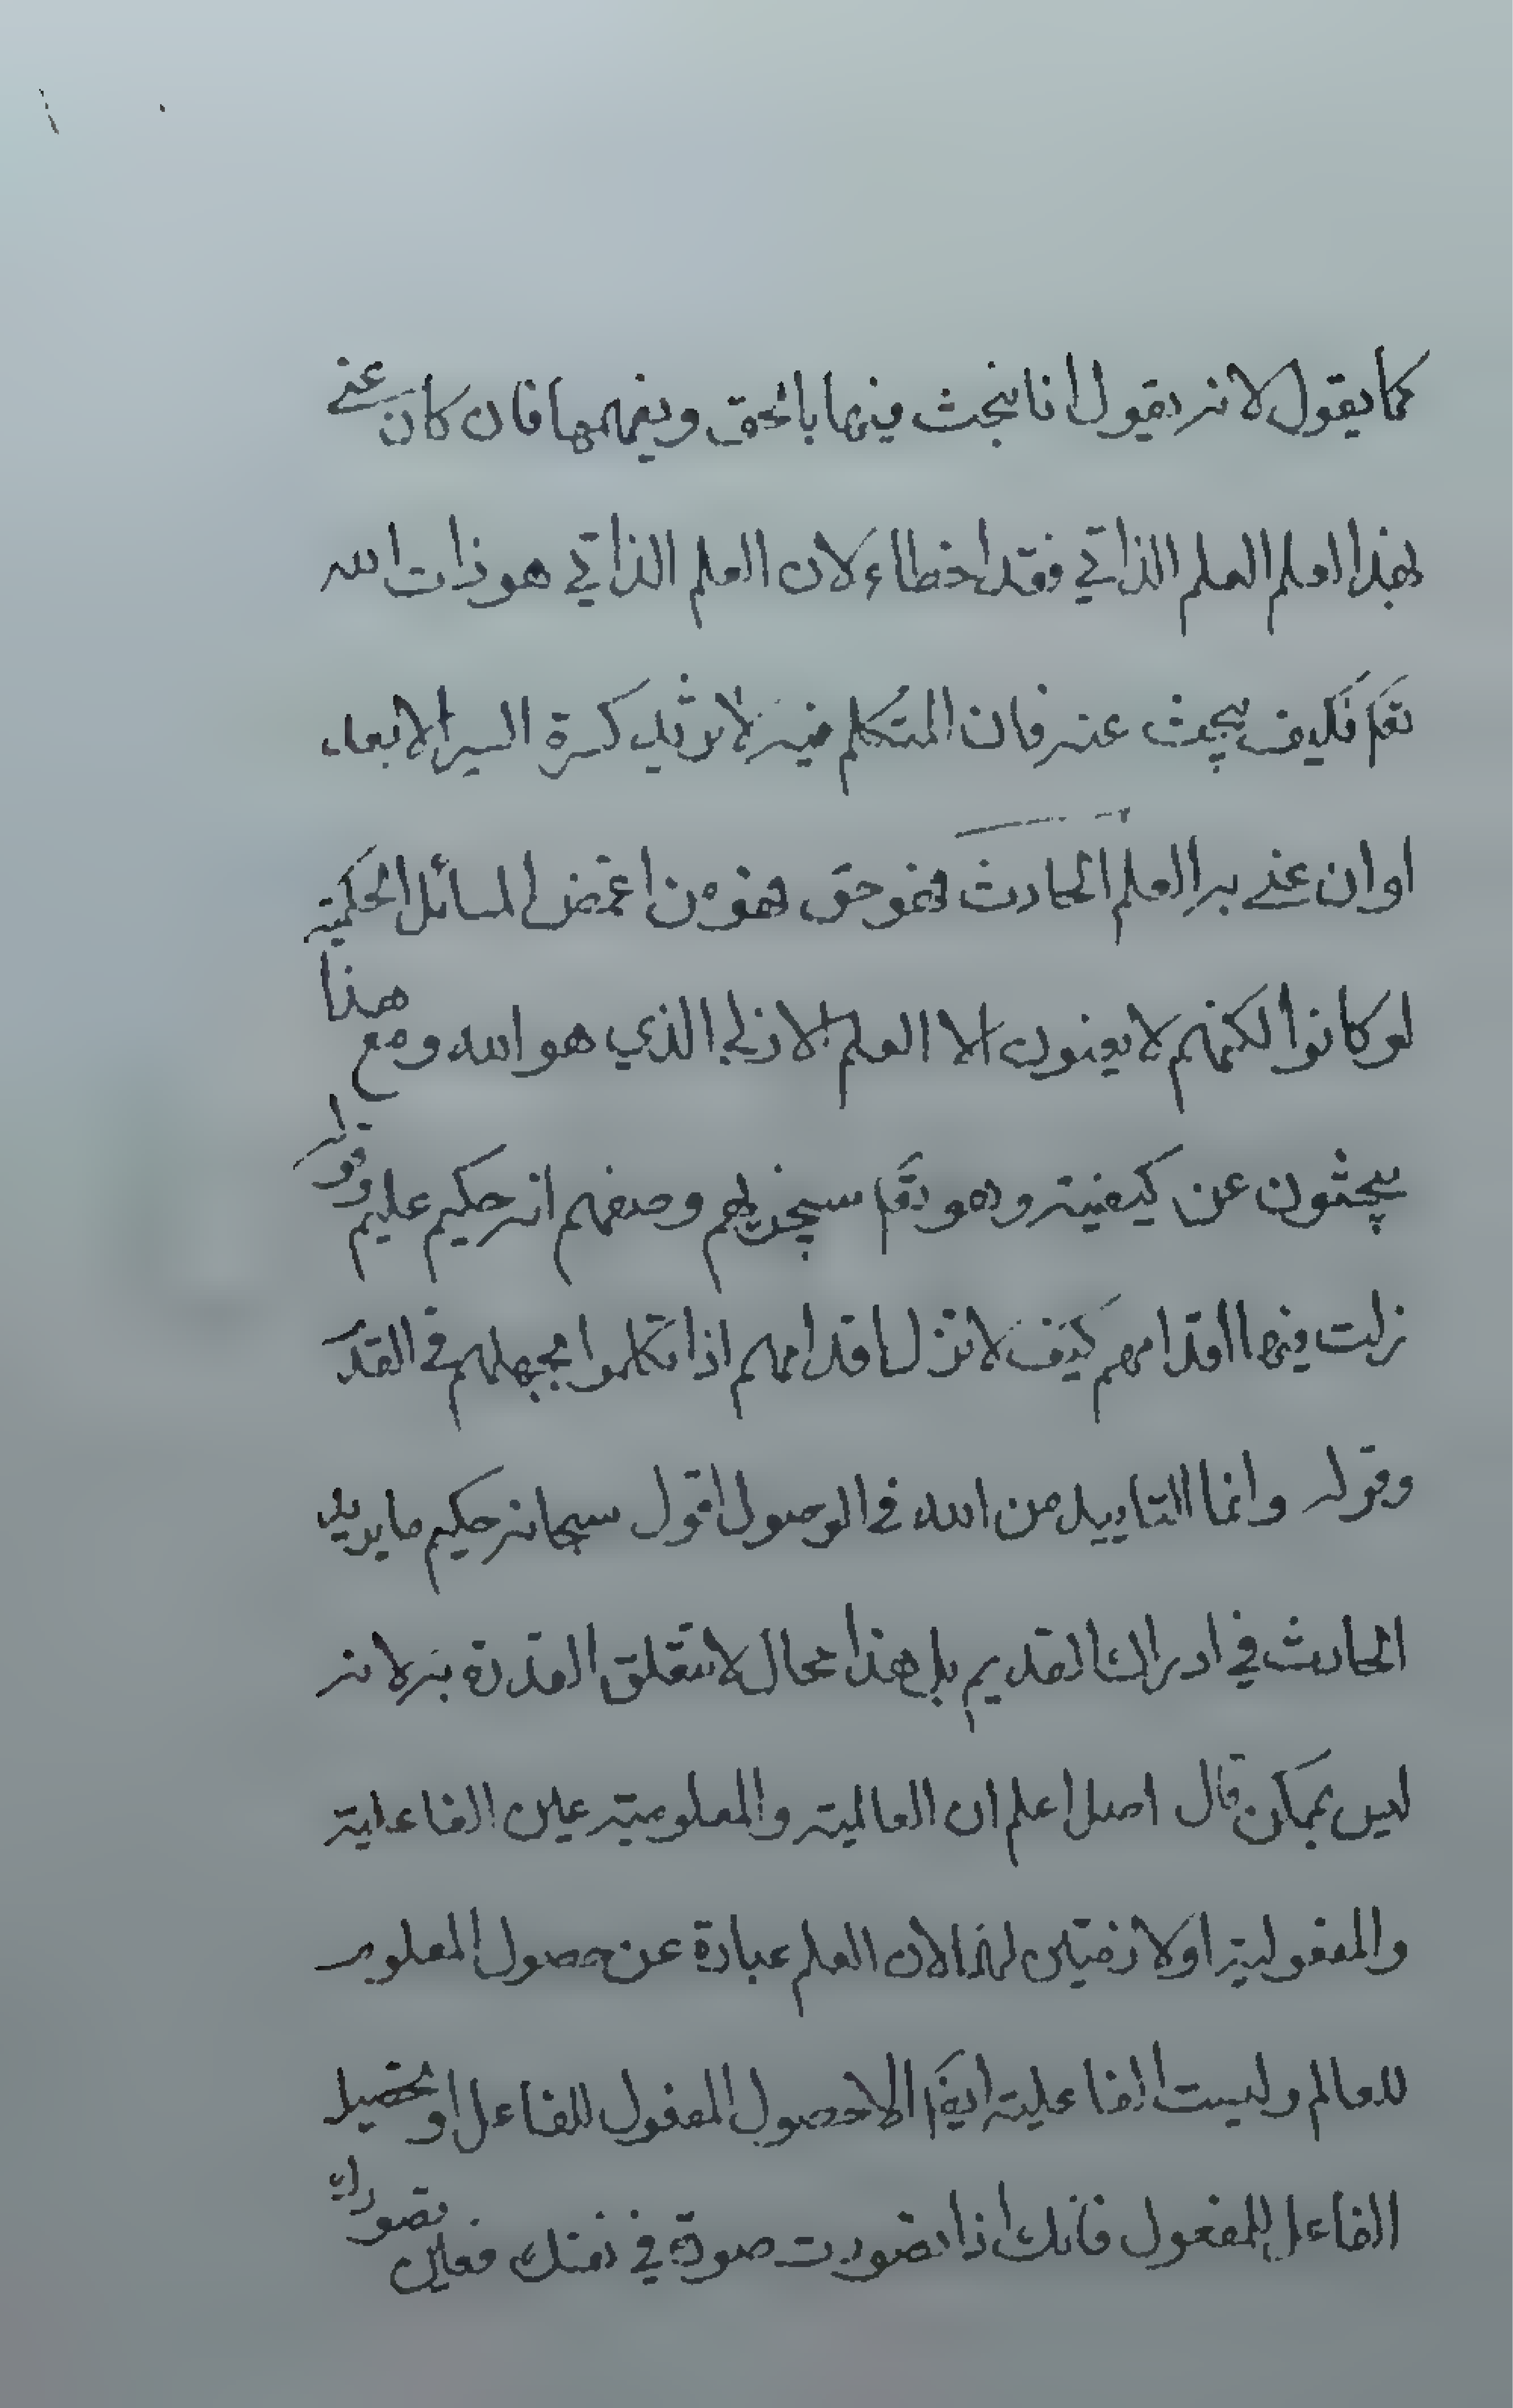 كما يقول لانه يقول انا نبحث فيها بالحق ويفهمها فان كان عنى
بهذا العلم العلم الذاتي فقد اخطاء لان العلم الذاتي هو ذات الله
تعم فكيف يبحث عنه فان المتكلم فيه لا يزيد كثرة السير الا بعدا
او ان عنى به العلم الحادث فهو حق فهو من اغمض المسائل الحكمية
لو كانوا لكنهم لا يعنون الا العلم الازلي الذي هو الله ومع هذا
يبحثون عن كيفيته وهو تعم سيجزيهم وصفهم انه حكيم عليم وقوله
زلت فيها اقدامهم كيف لا تزل اقدامهم اذا تكلموا بجهلهم في القدم
وقوله وانما التاييد من الله في الوصول اقول سبحانه حكيم ما يريد
الحادث في ادراك القديم بل هذا محال لا تتعلق القدرة به لانه
ليس بممكن قال اصل اعلم ان العالمية والمعلومية عين الفاعلية
والمفعولية او لازمتين لهذا لان العلم عبارة عن حصول المعلوم
للعالم وليست الفاعلية ايضا الا حصول المفعول للفاعل او تحصيل
الفاعل للمفعول فانك اذا تصورت صورة في ذهنك فعين تصورك